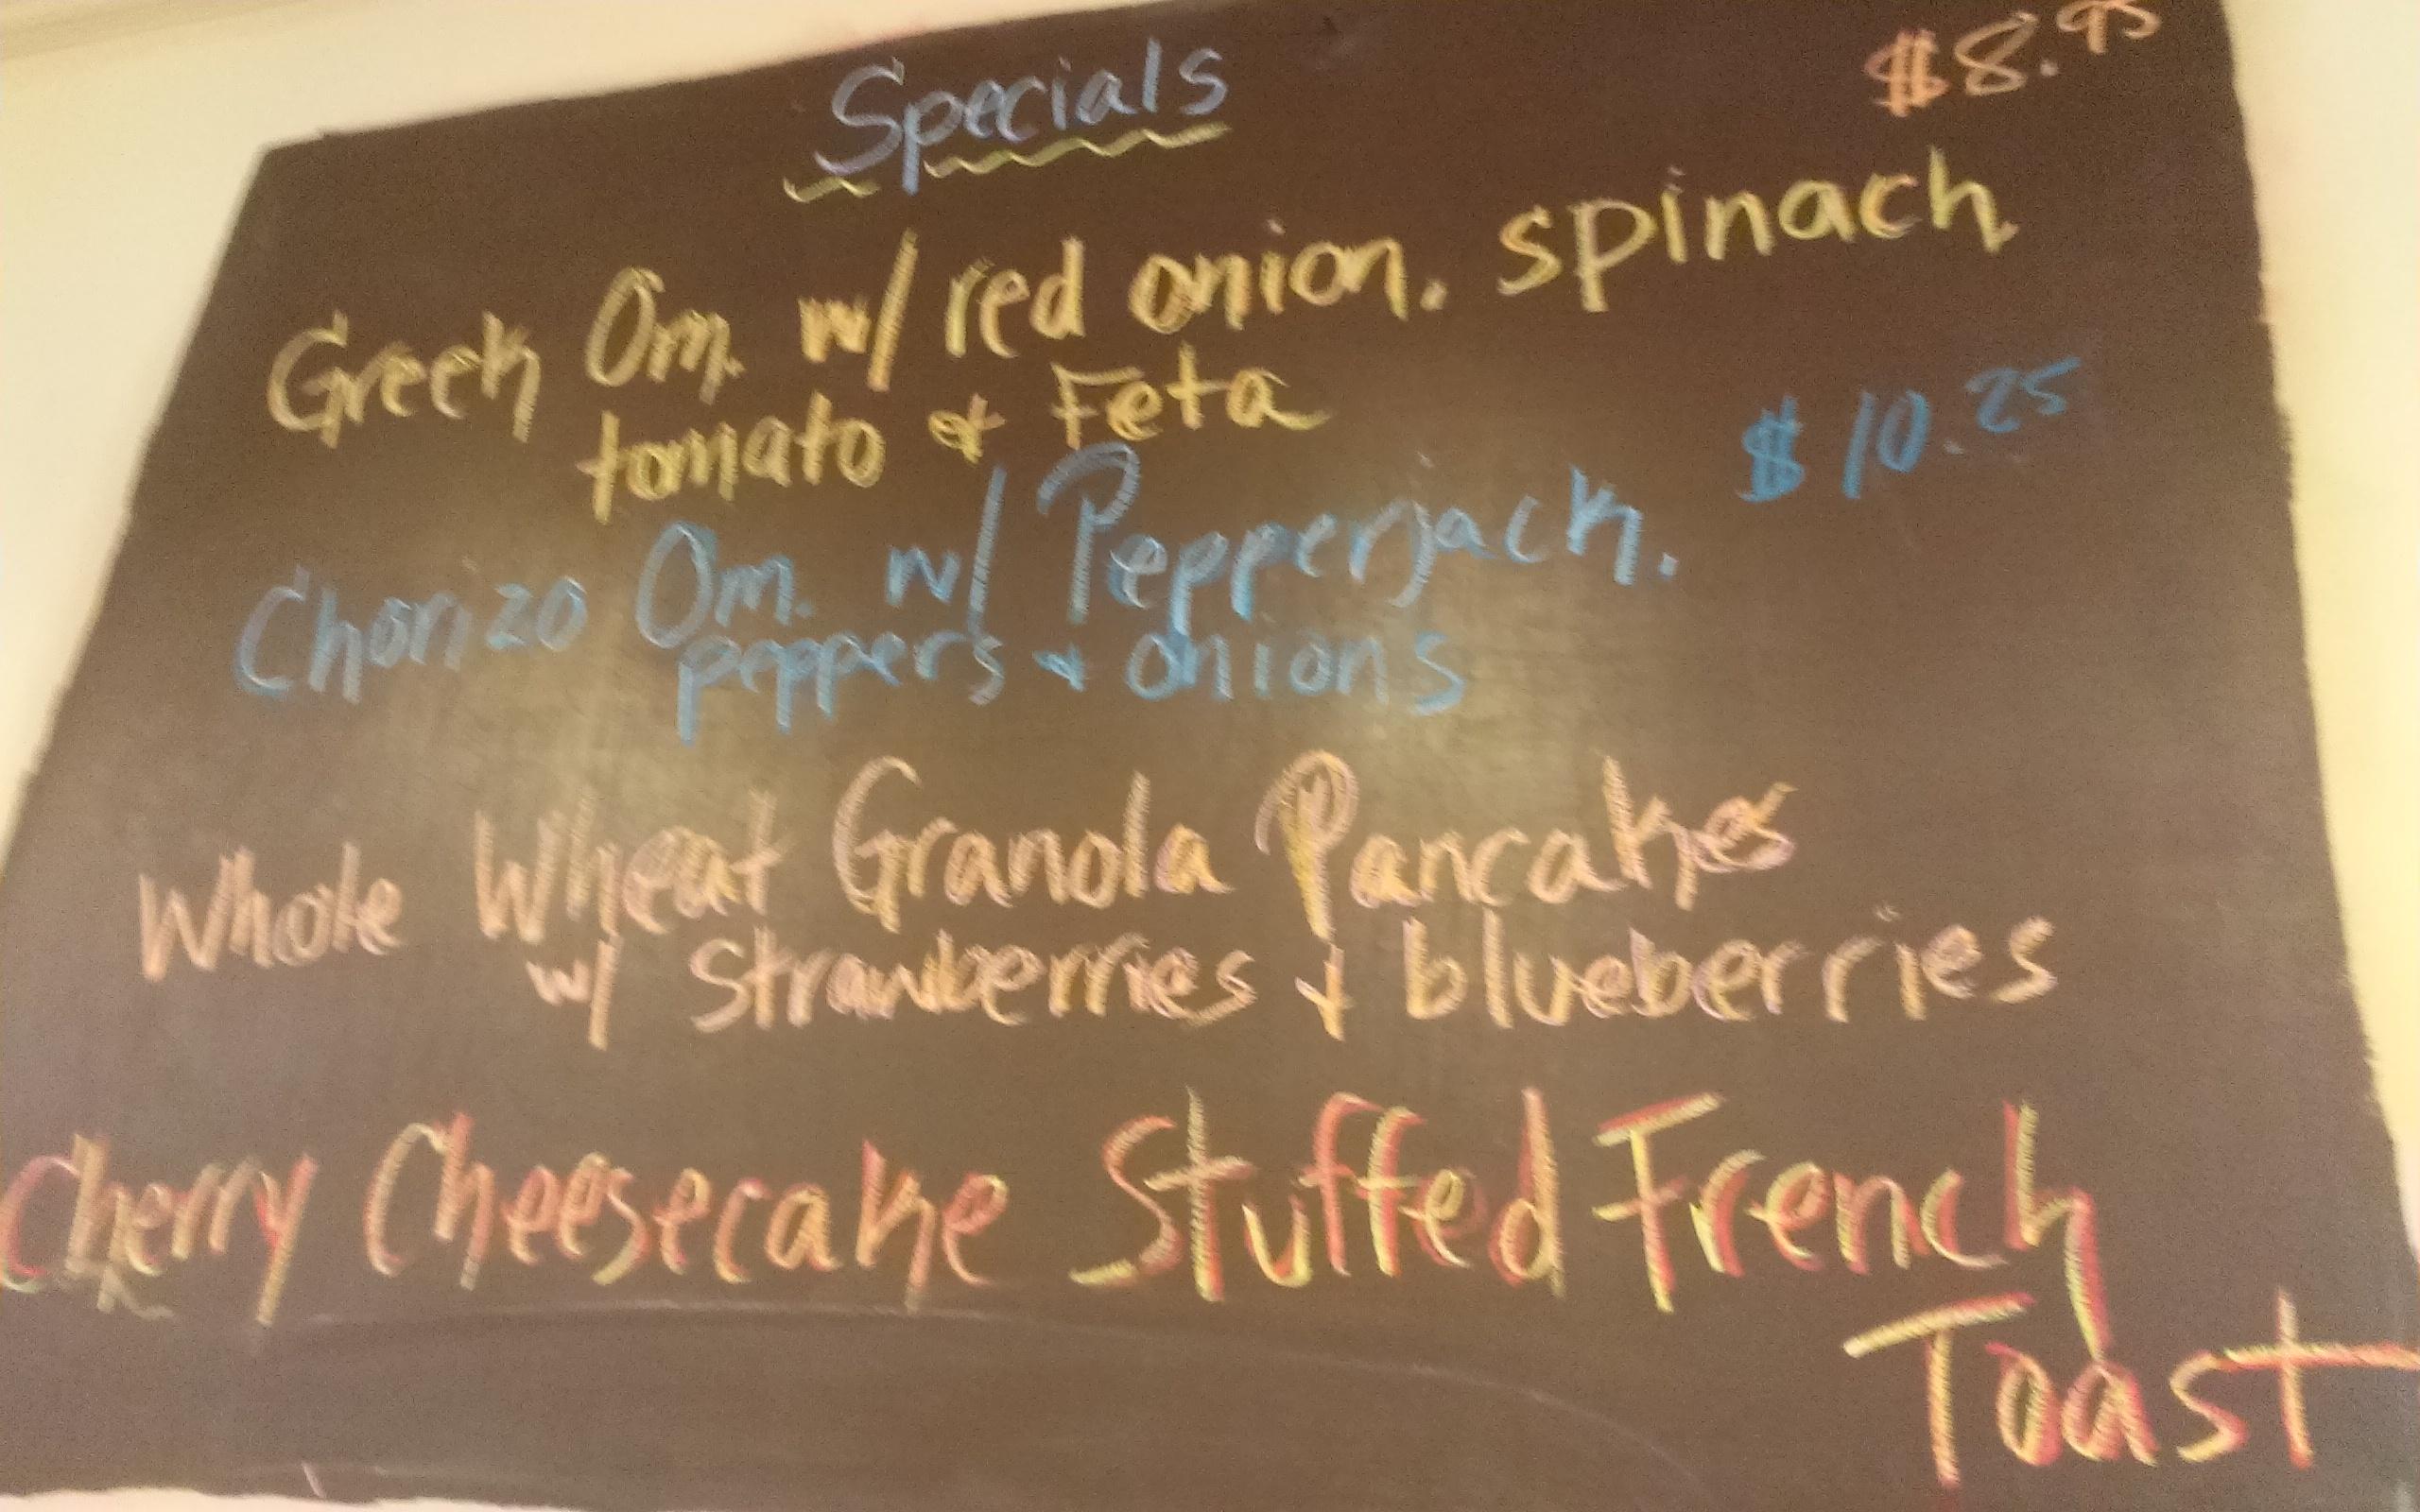 Specials
$8.95
Greek Om. w/ red onion, spinach
tomato & Feta
$10.25
Chorizo Om. w/ Pepperjack,
peppers & onions
Whole Wheat Granola Pancakes
w/ strawberries & blueberries
Cherry Cheesecake Stuffed French
Toast